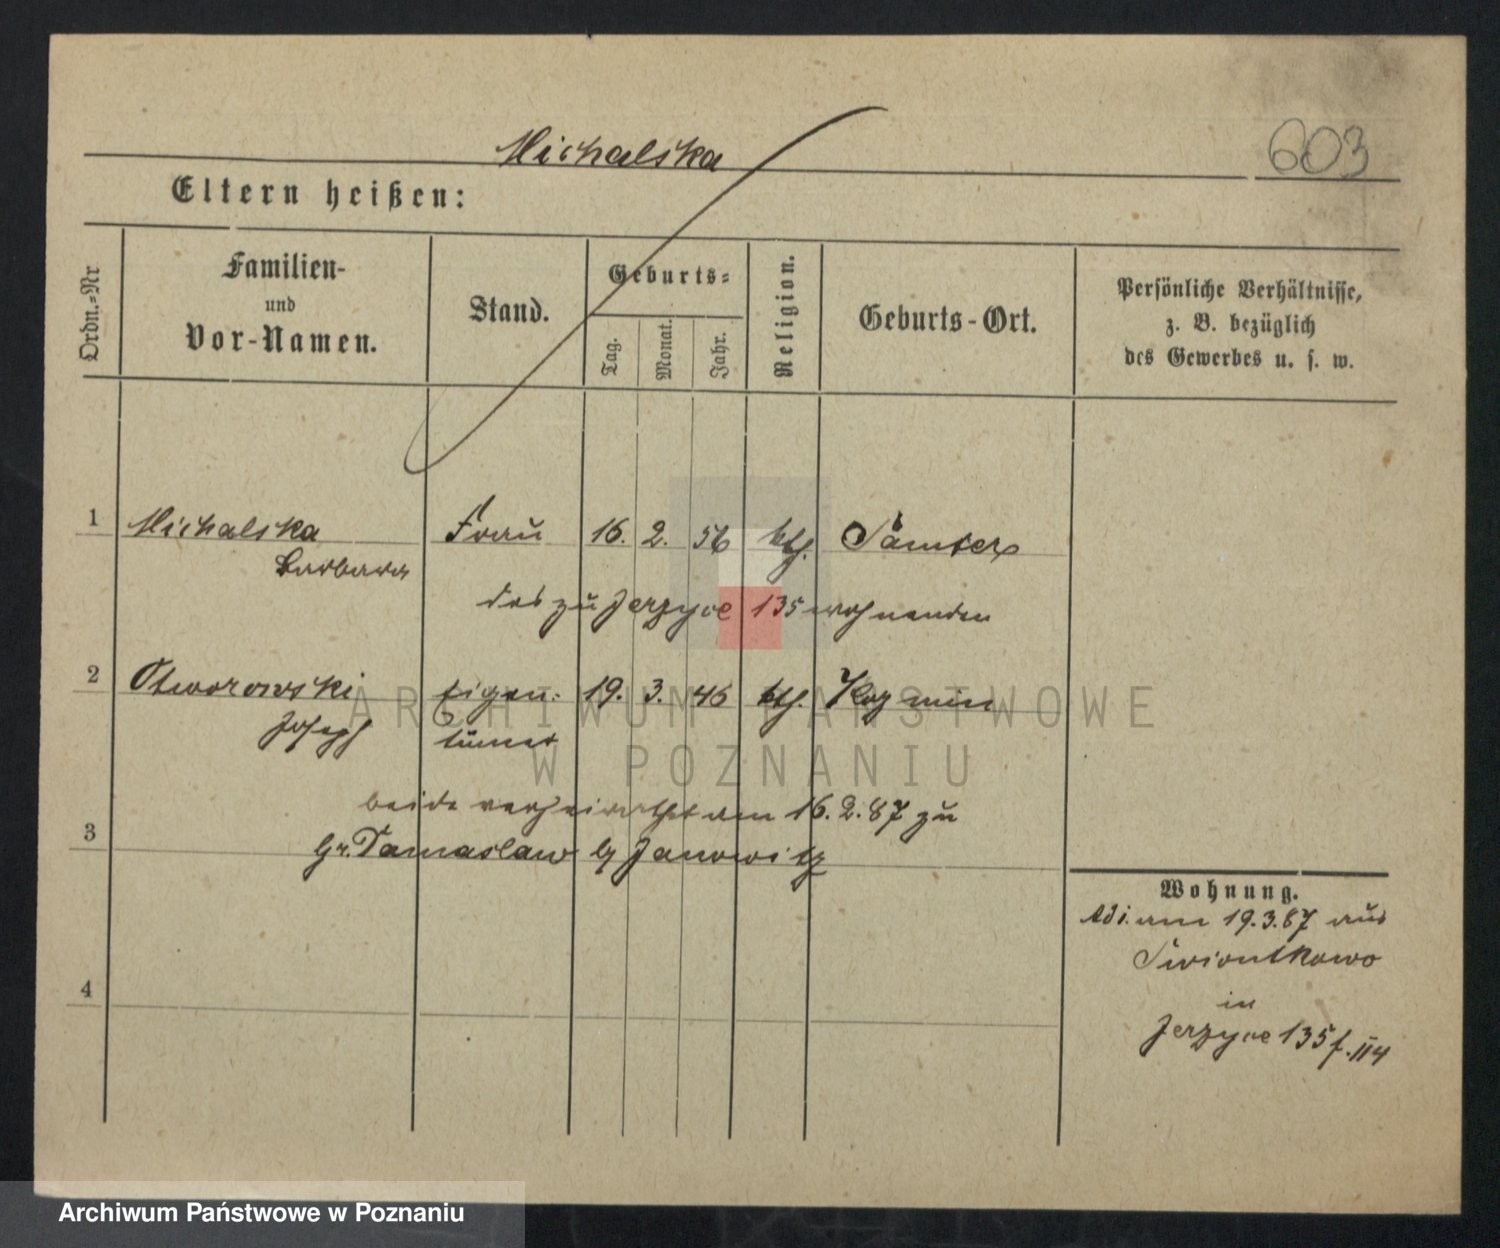 Michalska
603
Eltern heißen:
Ordn.=Nr
Familien-
und
Vor-Namen.
Stand.
Geburts=
Tag.
Monat.
Jahr.
Religion.
Geburts-Ort.
Persönliche Verhältnisse,
z. B. bezüglich
des Gewerbes u. s. w.
1 Michalska Frau 16. 2. 56 kth. Samter
Barbara
des zu Jerzyce 135 wohnenden
2 Otworowski Eigen: 19. 3. 46 kth. Kozmin
Joseph tümer
beide verheirathet am 16. 2. 87 zu
3 Gr. Tomaslaw b/ Janowitz
4
Wohnung.
am 19.3.87 aus
Swiontkowo
in
Jerzyce 135 f. II 4
ARCHIWUM PAŃSTWOWE
W POZNANIU
Archiwum Państwowe w Poznaniu